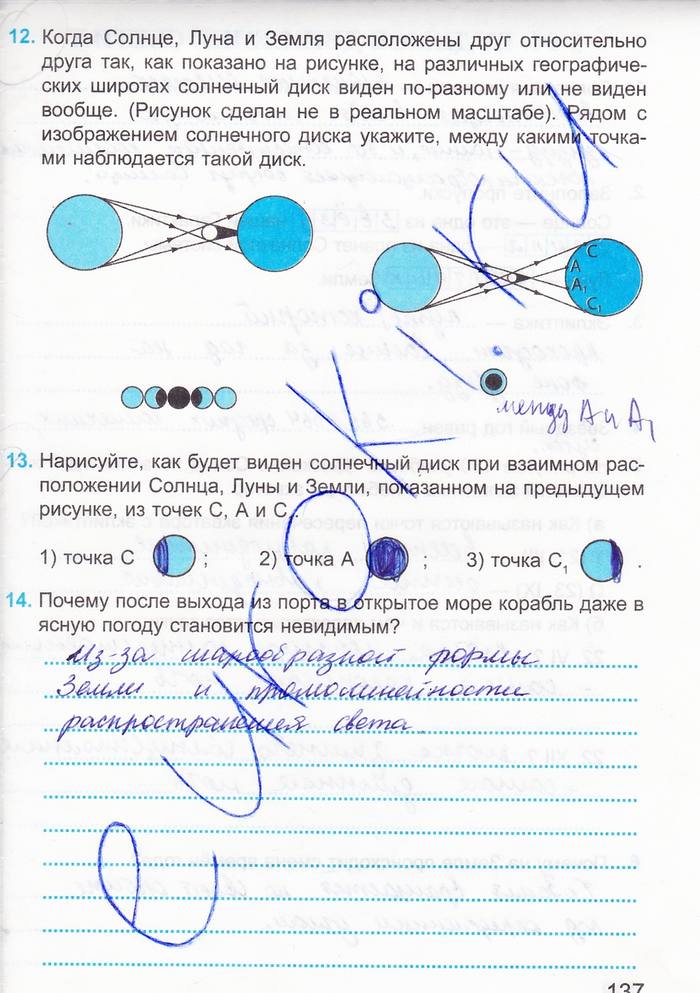 12. Когда Солнце, Луна и Земля расположены друг относительно
друга так, как показано на рисунке, на различных географиче-
ских широтах солнечный диск виден по-разному или не виден
вообще. (Рисунок сделан не в реальном масштабе). Рядом с
изображением солнечного диска укажите, между какими точка-
ми наблюдается такой диск.
C
A
A₁
C₁
между A и A₁
13. Нарисуйте, как будет виден солнечный диск при взаимном рас-
положении Солнца, Луны и Земли, показанном на предыдущем
рисунке, из точек С, А и С₁.
1) точка С ; 2) точка А ; 3) точка С₁ .
14. Почему после выхода из порта в открытое море корабль даже в
ясную погоду становится невидимым?
Из-за шарообразной формы
Земли и прямолинейности
распространения света
137